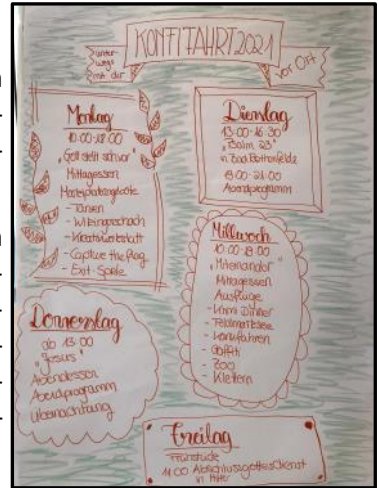 KONFIFAHRT 2021
unter-
wegs
mit dir
vor Ort
Montag
10:00-18:00
„Gott stellt sich vor“
Mittagessen
Marktplatzangebote
- Tanzen
- Wikingerschach
- Kreativwerkstatt
- Capture the flag
- Exit-Spiele
Dienstag
13:00-16:30
„Psalm 23“
in Bad Rothenfelde
19:00-21:00
Abendprogramm
Mittwoch
10:00-18:00
„Miteinander“
Mittagessen
Ausflüge
- Krimi Dinner
- Feldmarksee
- Kanufahren
- Graffiti
- Zoo
- Klettern
Donnerstag
ab 13:00
„Jesus“
Abendessen
Abendprogramm
Übernachtung
Freitag
Frühstück
11:00 Abschlussgottesdienst
in